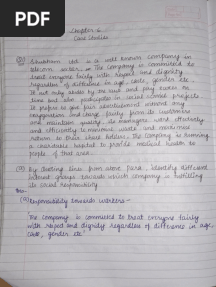 PDF
Chapter - 6
Case Studies
Q1 Shubham Ltd. is a well known company in
telecom sector. The company is committed to
treat everyone fairly with respect and dignity
regardless of difference in age, caste, gender etc.
It not only abides by the rules and pay taxes on
time but also participates in social services projects.
It prefers to get fair advertisement without any
exaggeration and charge fairly from its customers
and maintain quality. It managers work effectively
and efficiently to minimise waste and maximises
return to their share holders. The company is running
a charitable hospital to provide medical health to
people of that area.
(Q) By Quoting lines from above Para, identify different
interest groups towards which company is fulfilling
its social responsibility.
Ans-
(a) Responsibility towards workers -
"The company is committed to treat everyone fairly
with respect and dignity regardless of difference in age,
caste, gender etc."